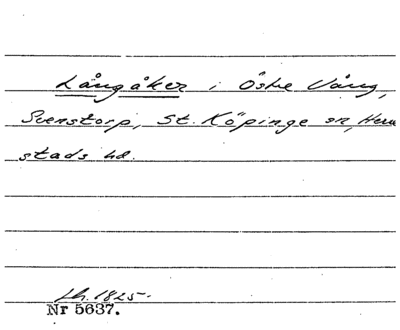 Långåker i Östre Vång,
Svenstorp, St. Köpinge sn, Herre
stads hd.
Lh. 1825.
Nr 5637.